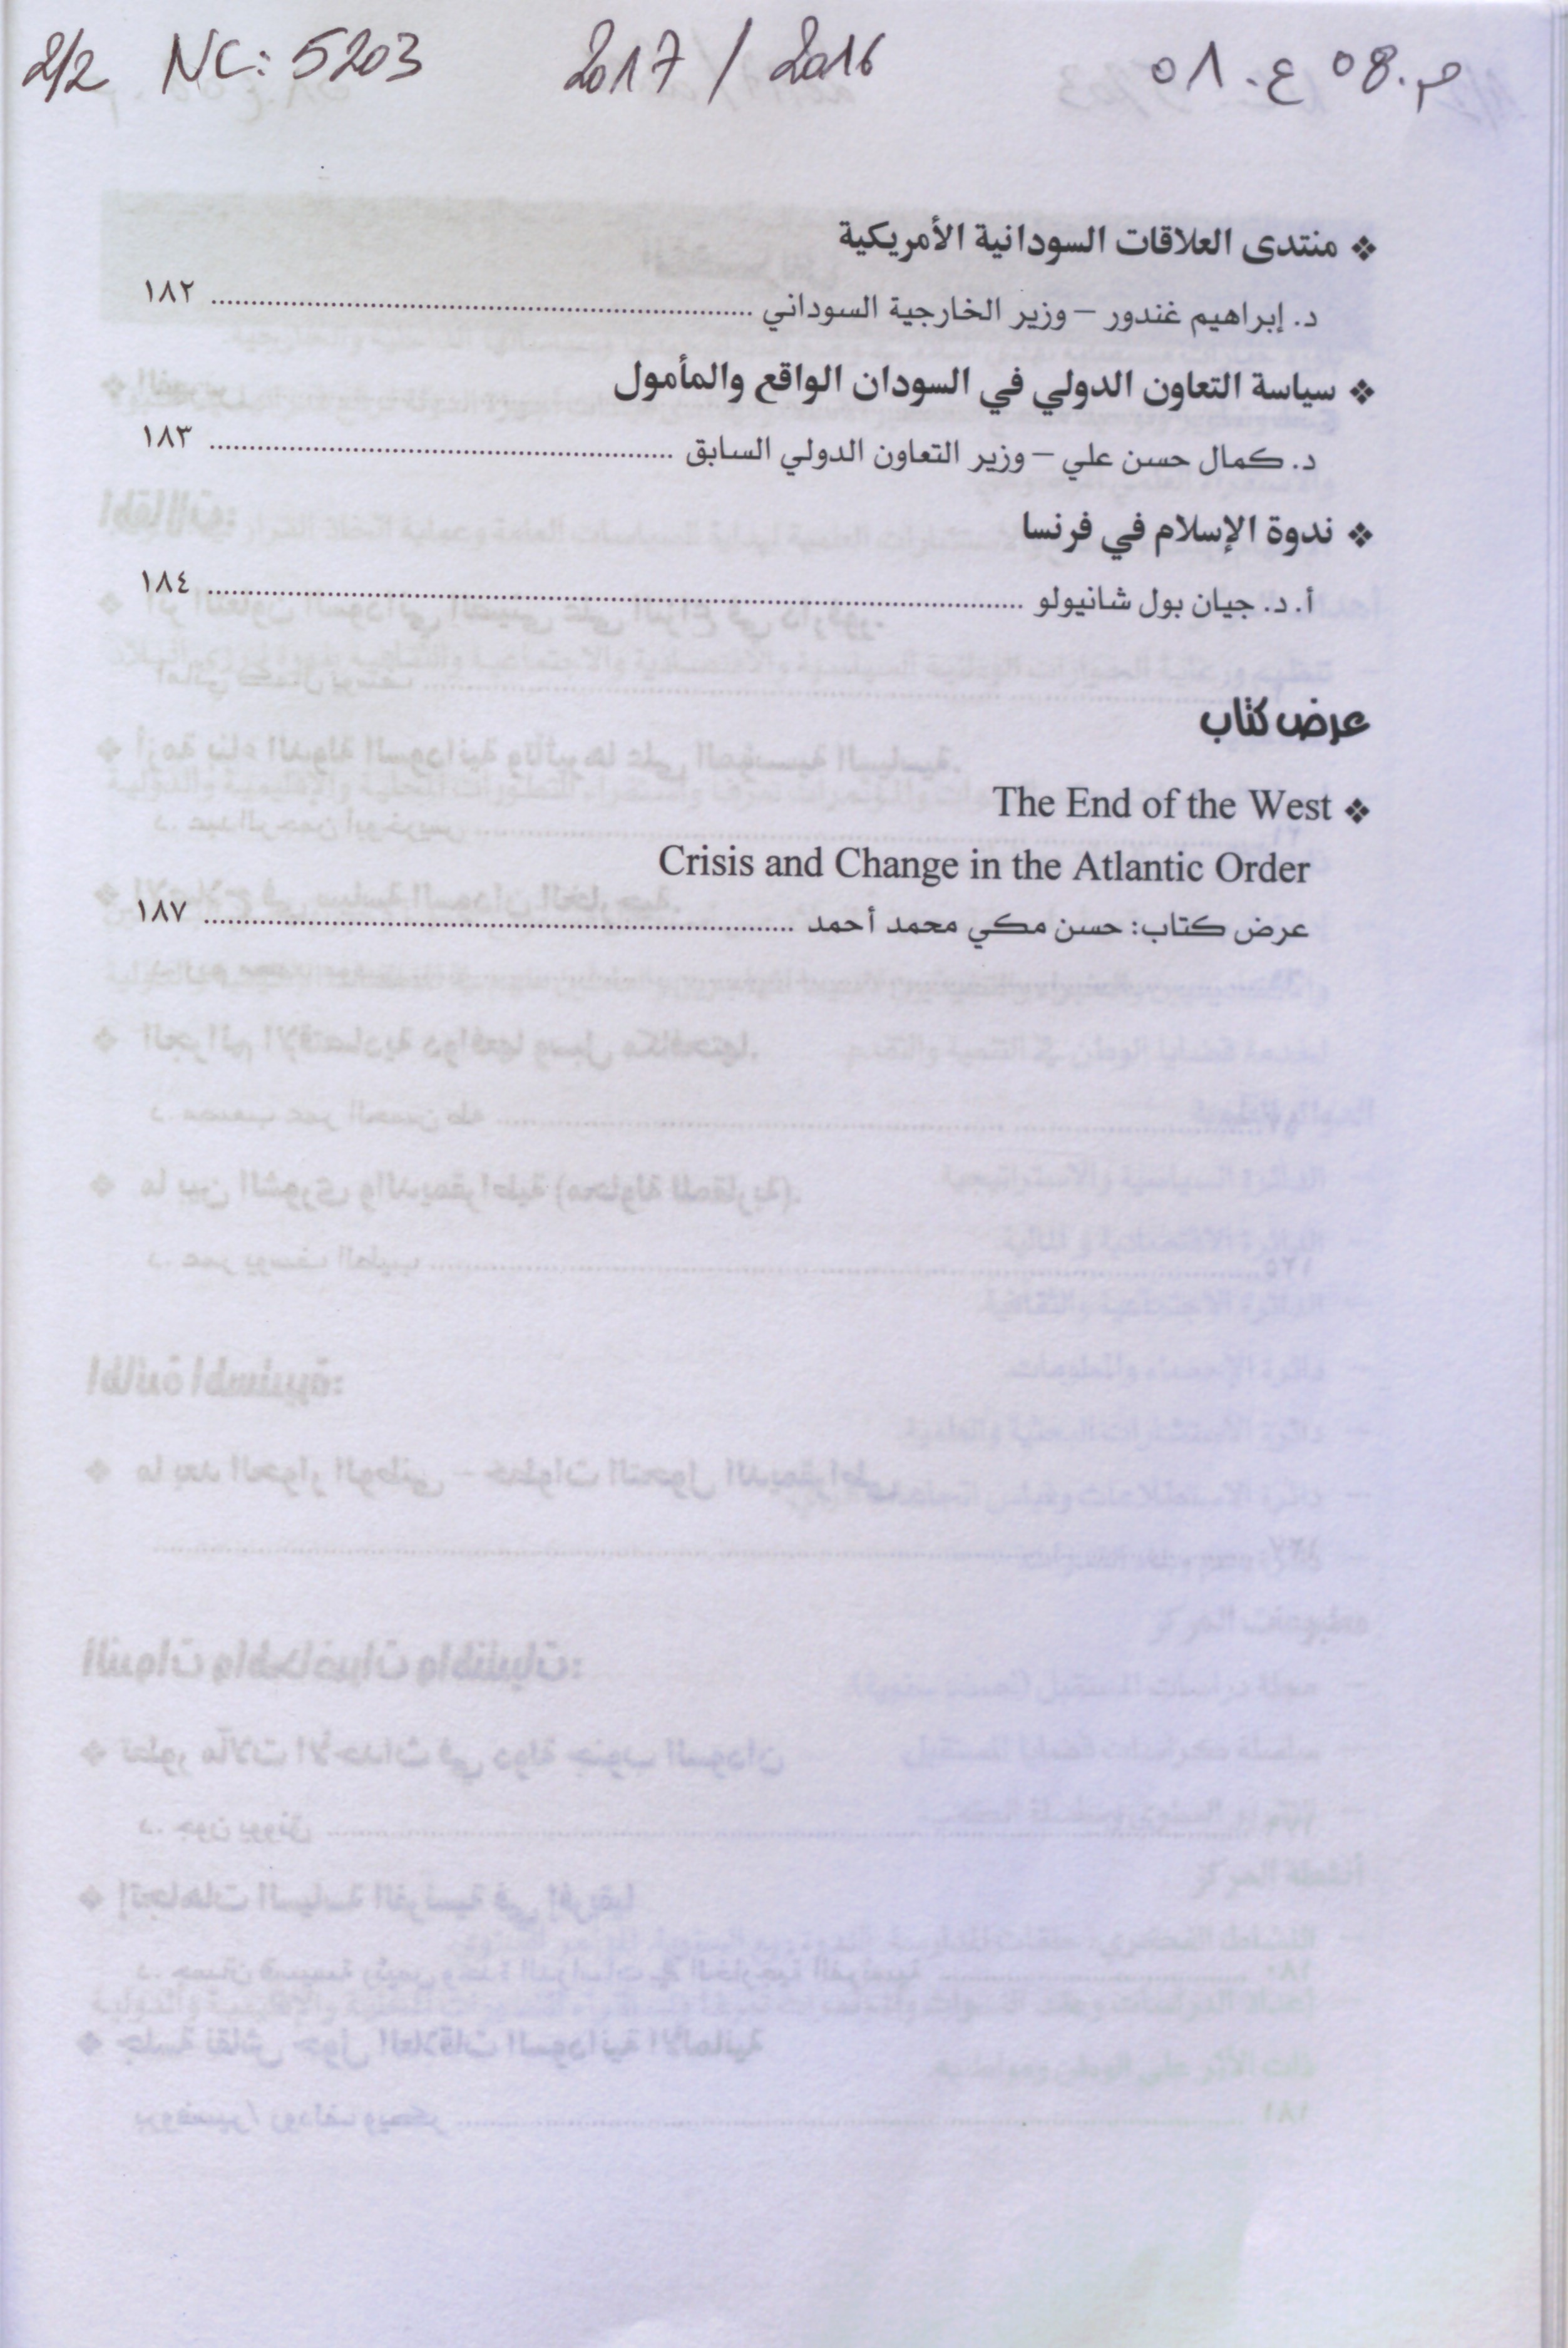 2/2 NC: 5203 2017 / 2016 م.08 ع.01
❖ منتدى العلاقات السودانية الأمريكية
د. إبراهيم غندور – وزير الخارجية السوداني ........ ١٨٢
❖ سياسة التعاون الدولي في السودان الواقع والمأمول
د. كمال حسن علي – وزير التعاون الدولي السابق ........ ١٨٣
❖ ندوة الإسلام في فرنسا
أ. د. جيان بول شانيولو ........ ١٨٤
عرض كتاب
❖ The End of the West
Crisis and Change in the Atlantic Order
عرض كتاب: حسن مكي محمد أحمد ........ ١٨٧